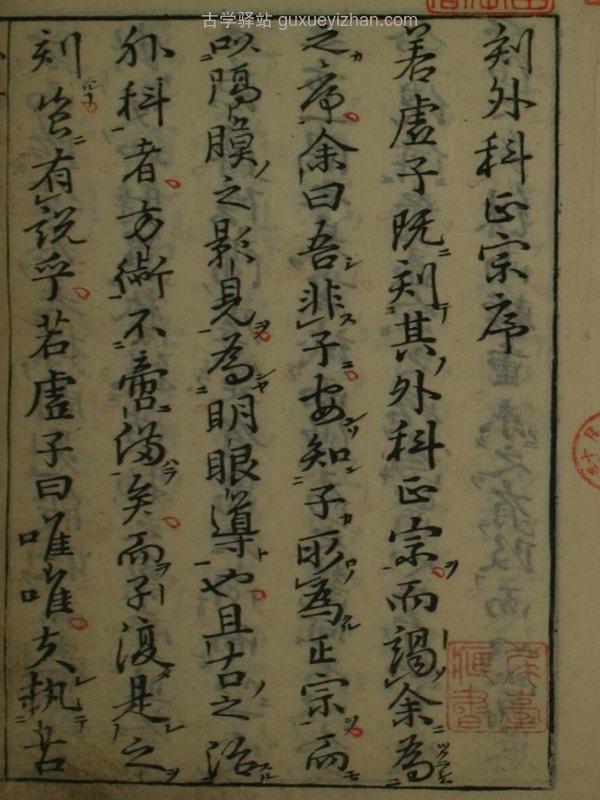 古学驿站 guxueyizhan.com
刻外科正宗序
若虛子既刻其外科正宗而謁余為
之序余曰吾非子安知子所為正宗而
以隔膜之影見為明眼導也且古之治
外科者方術不啻滿矣而子復是之
刻豈有說乎若虛子曰唯唯夫執古